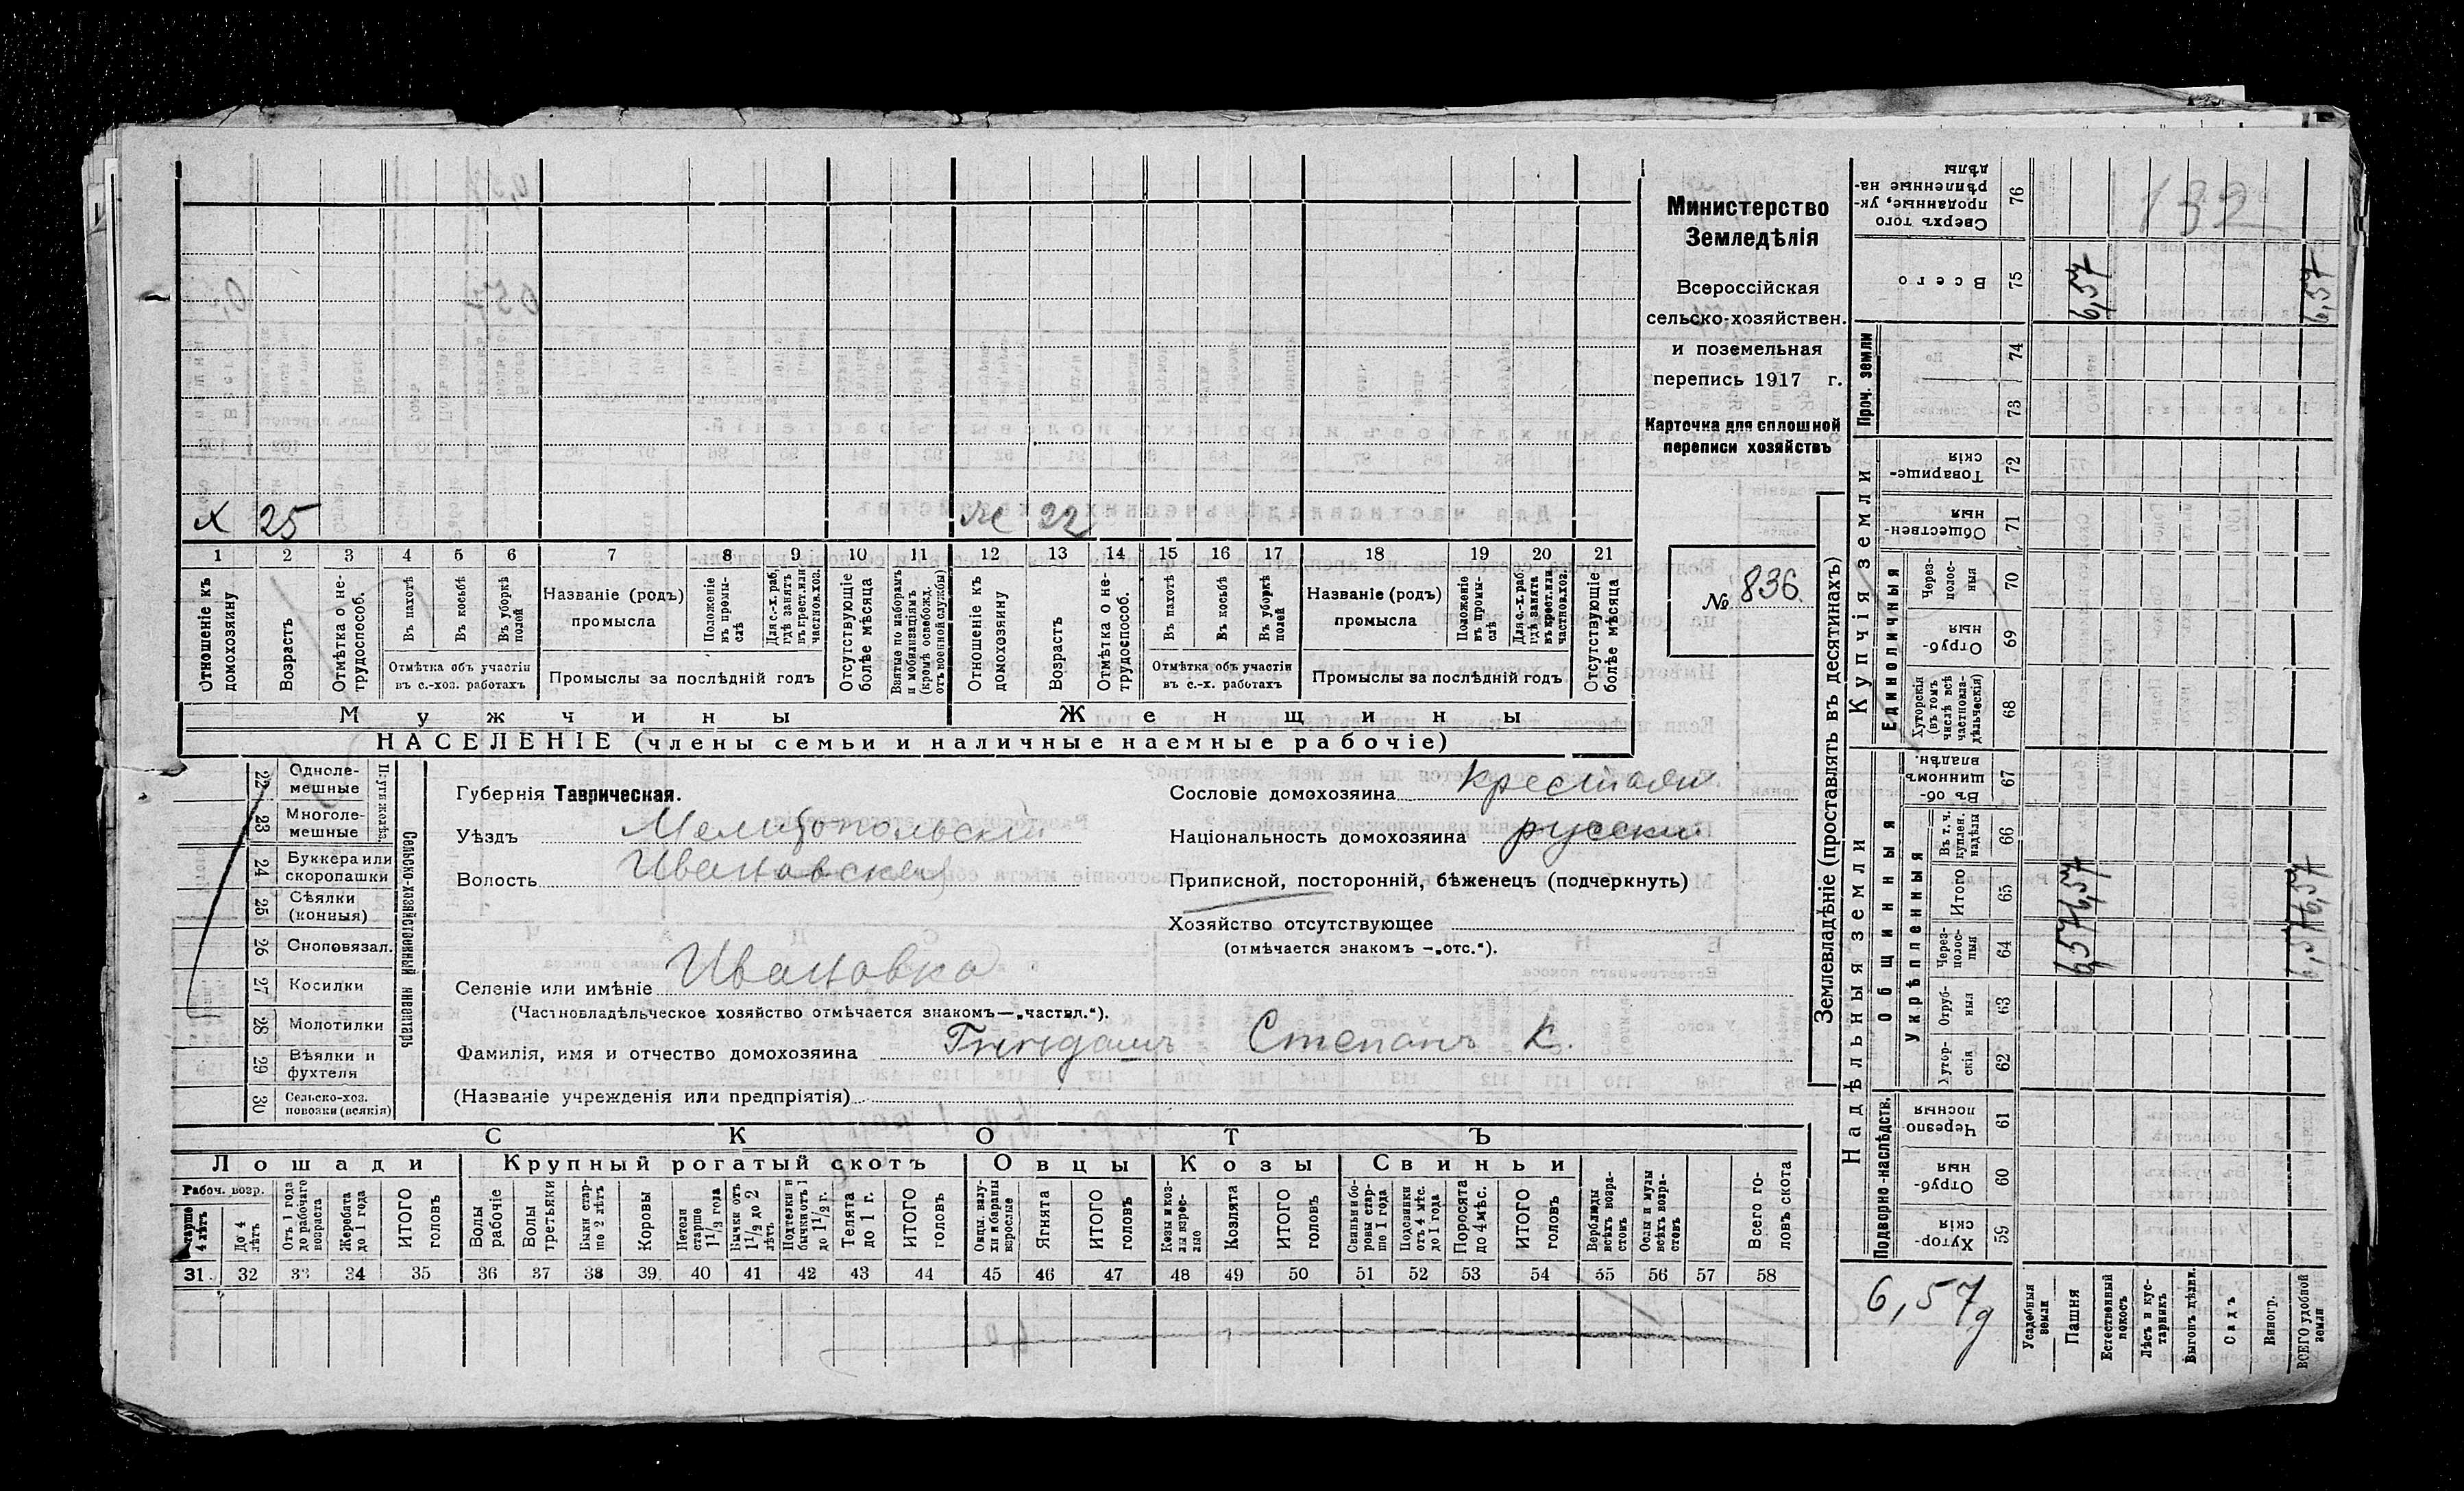 Министерство
Земледѣлія
Всероссійская
сельско-хозяйствен.
и поземельная
перепись 1917 г.
Карточка для сплошной
переписи хозяйствъ
№ 836.
х 25 ж 22
1 2 3 4 5 6 7 8 9 10 11 12 13 14 15 16 17 18 19 20 21
Отношеніе къ домохозяину
Возрастъ
Отмѣтка о не-трудоспособ.
Въ пахотѣ
Въ косьбѣ
Въ уборкѣ полей
Отмѣтка объ участіи
въ с.-хоз. работахъ
Названіе (родъ)
промысла
Положеніе въ промы-слѣ
Для с.-х. раб, гдѣ занятъ въ крест. или частнов. хоз.
Промыслы за послѣдній годъ
Отсутствующіе болѣе мѣсяца
Взятые по наборамъ и мобилизаціямъ (кромѣ освобожд. отъ военной службы)
Отношеніе къ домохозяину
Возрастъ
Отмѣтка о не-трудоспособ.
Въ пахотѣ
Въ косьбѣ
Въ уборкѣ полей
Отмѣтка объ участіи
въ с.-х. работахъ
Названіе (родъ)
промысла
Положеніе въ промы-слѣ
Для с.-х. раб гдѣ занята въ крест. или частнов. хоз.
Промыслы за послѣдній годъ
Отсутствующіе болѣе мѣсяца
Мужчины Женщины
НАСЕЛЕНІЕ (члены семьи и наличные наемные рабочіе)
Сельско-хозяйственный инвентарь
22 Одноле-мешные
23 Многоле-мешные
24 Буккера или скоропашки
25 Сѣялки (конныя)
26 Сноповязал.
27 Косилки
28 Молотилки
29 Вѣялки и фухтеля
30 Сельско-хоз. повозки (всякія)
Губернія Таврическая.
Уѣздъ Мелитопольскій
Волость Ивановская
Сословіе домохозяина крестьян.
Національность домохозяина русский
Приписной, посторонній, бѣженецъ (подчеркнуть)
Хозяйство отсутствующее
(отмѣчается знакомъ —„отс.“).
Селеніе или имѣніе Ивановка
(Частновладѣльческое хозяйство отмѣчается знакомъ—„частвл.“).
Фамилія, имя и отчество домохозяина Степанъ К.
(Названіе учрежденія или предпріятія)
СКОТЪ
Лошади Крупный рогатый скотъ Овцы Козы Свиньи
Рабоч. возр.
старше 4 лѣтъ
До 4 лѣтъ
Отъ 1 года до рабочаго возраста
Жеребята до 1 года
ИТОГО головъ
Волы рабочіе
Волы третьяки
Быки стар-ше 2 лѣтъ
Коровы
Нетели старше 1 1/2 года
Бычки отъ 1 1/2 до 2 лѣтъ
Подтелки и бычки отъ 1 до 1 1/2 г.
Телята до 1 г.
ИТОГО головъ
Овцы, валу-хи и бараны взрослые
Ягнята
ИТОГО головъ
Козы и коз-лы взрос-лые
Козлята
ИТОГО головъ
Свиньи и бо-ровы стар-ше 1 года
Подсвинки отъ 4 мѣс. до 1 года
Поросята до 4 мѣс.
ИТОГО головъ
Верблюды всѣхъ возра-стовъ
Ослы и мулы всѣхъ возра-стовъ
Всего го-ловъ скота
31 32 33 34 35 36 37 38 39 40 41 42 43 44 45 46 47 48 49 50 51 52 53 54 55 56 57 58
Землевладѣніе (проставлять въ десятинахъ)
Надѣльныя земли
Купчія земли
Проч. земли
Сверхъ того проданные, ук-рѣпленные на-дѣлы 76
132
Всего 75 6,57 6,57
74
73
Товарище-скія 72
Обществен-ныя 71
Единоличныя
Через-полос-ныя 70
Отруб-ныя 69
Хуторскія (въ томъ числѣ всѣ частновла-дѣльческія) 68
Общинныя
Въ об-щинномъ владѣн. 67
Укрѣпленныя
Въ т. ч. куплен. надѣлы 66
Итого 65 6,57 6,57
Через-полос-ныя 64 6,57 6,57
Отруб-ныя 63
Хутор-скія 62
Подворно-наслѣдств.
Черезпо-лосныя 61
Отруб-ныя 60
Хутор-скія 59
6,57д
Усадебныя земли
Пашня
Естественный покосъ
Лѣсъ и кус-тарникъ
Выгонъ дѣлви.
Садъ
Виногр.
ВСЕГО удобной земли